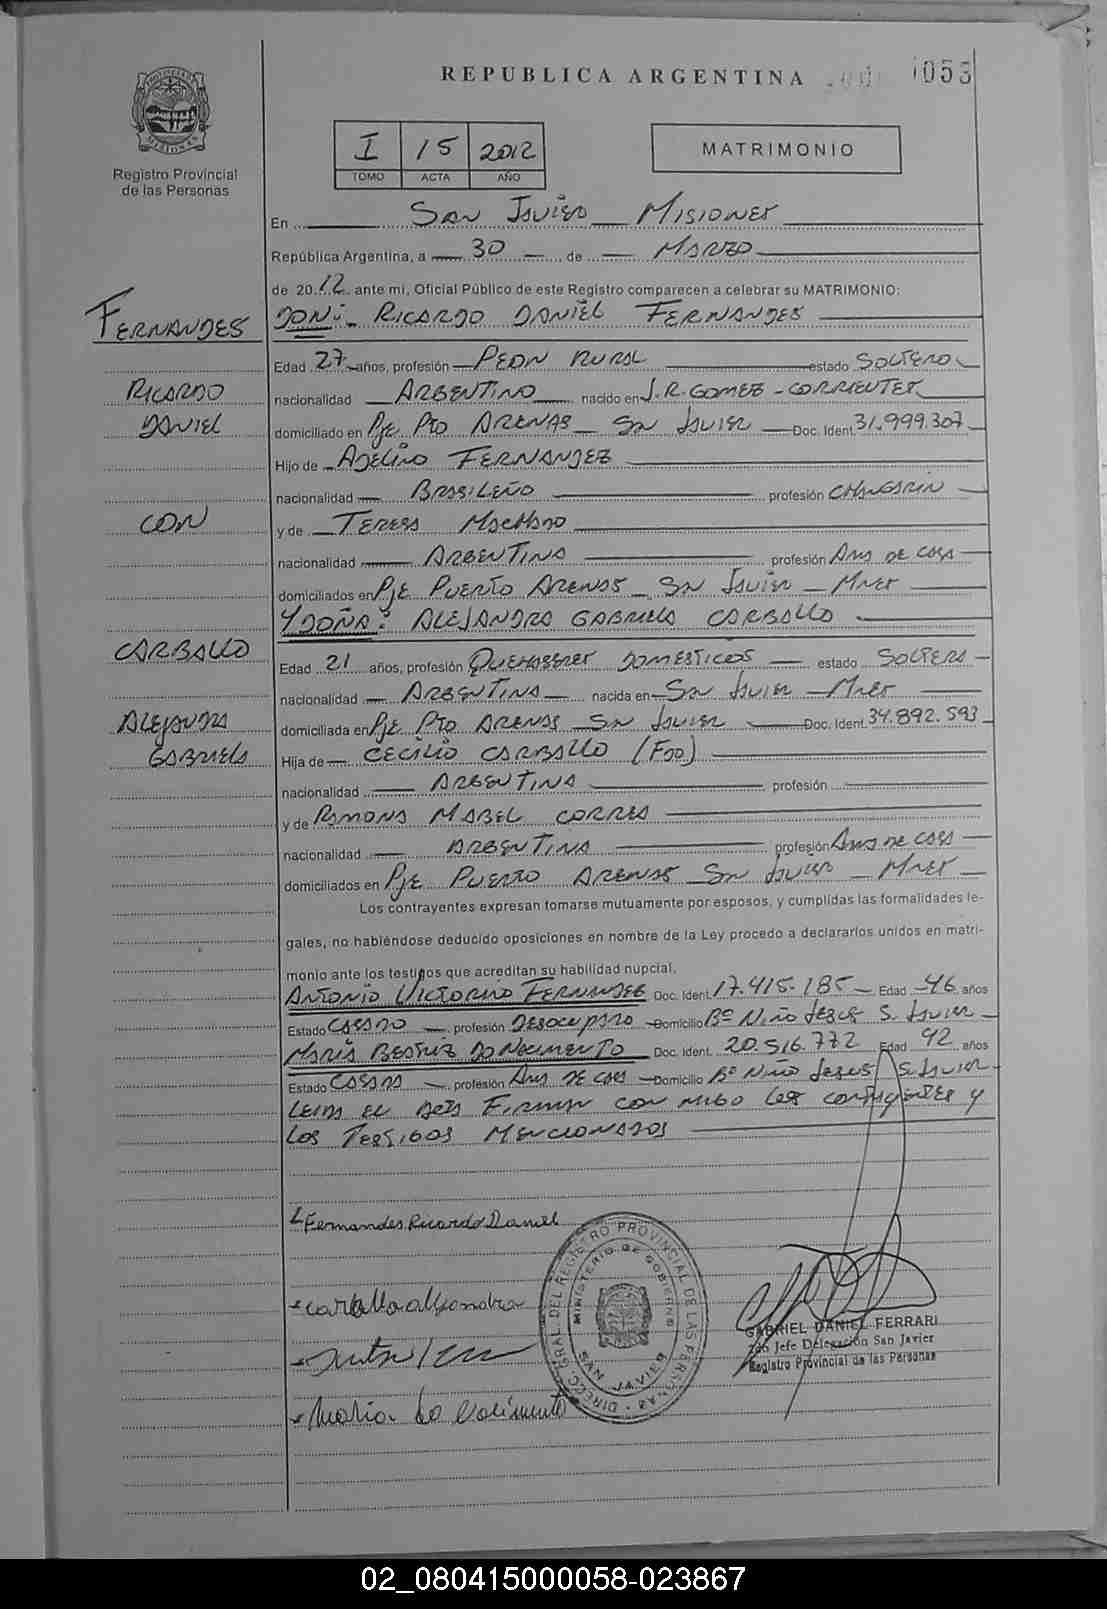 REPUBLICA ARGENTINA
055
PROVINCIA
MISIONES
Registro Provincial
de las Personas
I 15 2012
TOMO ACTA AÑO
MATRIMONIO
En San Javier Misiones
República Argentina, a 30 de Marzo
de 2012 ante mi, Oficial Público de este Registro comparecen a celebrar su MATRIMONIO:
FERNANDES
DON: RICARDO DANIEL FERNANDES
Edad 27 años, profesión PEON RURAL estado SOLTERO
RICARDO
nacionalidad ARGENTINO nacido en J.R. GOMEZ - CORRIENTES
DANIEL
domiciliado en Pje Pto ARENAS San Javier Doc. Ident. 31.999.307
Hijo de ADELINO FERNANDEZ
nacionalidad BRASILEÑO profesión CHANGARIN
CON
y de TERESA MACHADO
nacionalidad ARGENTINA profesión Ama de casa
domiciliados en Pje PUERTO ARENAS San Javier Mnes
Y DOÑA: ALEJANDRA GABRIELA CARBALLO
CARBALLO
Edad 21 años, profesión QUEHACERES DOMESTICOS estado SOLTERA
nacionalidad ARGENTINA nacida en San Javier Mnes
ALEJANDRA
domiciliada en Pje Pto ARENAS San Javier Doc. Ident. 34.892.593
GABRIELA
Hija de CECILIO CARBALLO (Fdo)
nacionalidad ARGENTINA profesión
y de RAMONA MABEL CORREA
nacionalidad ARGENTINA profesión Ama de casa
domiciliados en Pje PUERTO ARENAS San Javier Mnes
Los contrayentes expresan tomarse mutuamente por esposos, y cumplidas las formalidades le-
gales, no habiéndose deducido oposiciones en nombre de la Ley procedo a declararlos unidos en matri-
monio ante los testigos que acreditan su habilidad nupcial.
ANTONIO VICTORINO FERNANDES Doc. Ident. 17.415.185 Edad 46 años
Estado CASADO profesión DESOCUPADO Domicilio Bº Niño Jesus S. Javier
MARIA BEATRIZ DO NACIMENTO Doc. Ident. 20.516.772 Edad 42 años
Estado CASADA profesión Ama de casa Domicilio Bº Niño Jesus S. Javier
Leida el acta Firman con migo los contrayentes y
los Testigos Mencionados
Fernandes Ricardo Daniel
carballo alejandra
Maria do Nacimento
DIRECC. GRAL. DEL REGISTRO PROVINCIAL DE LAS PERSONAS
MINISTERIO DE GOBIERNO
SAN JAVIER
GABRIEL DANIEL FERRARI
2do Jefe Delegación San Javier
Registro Provincial de las Personas
02_080415000058-023867